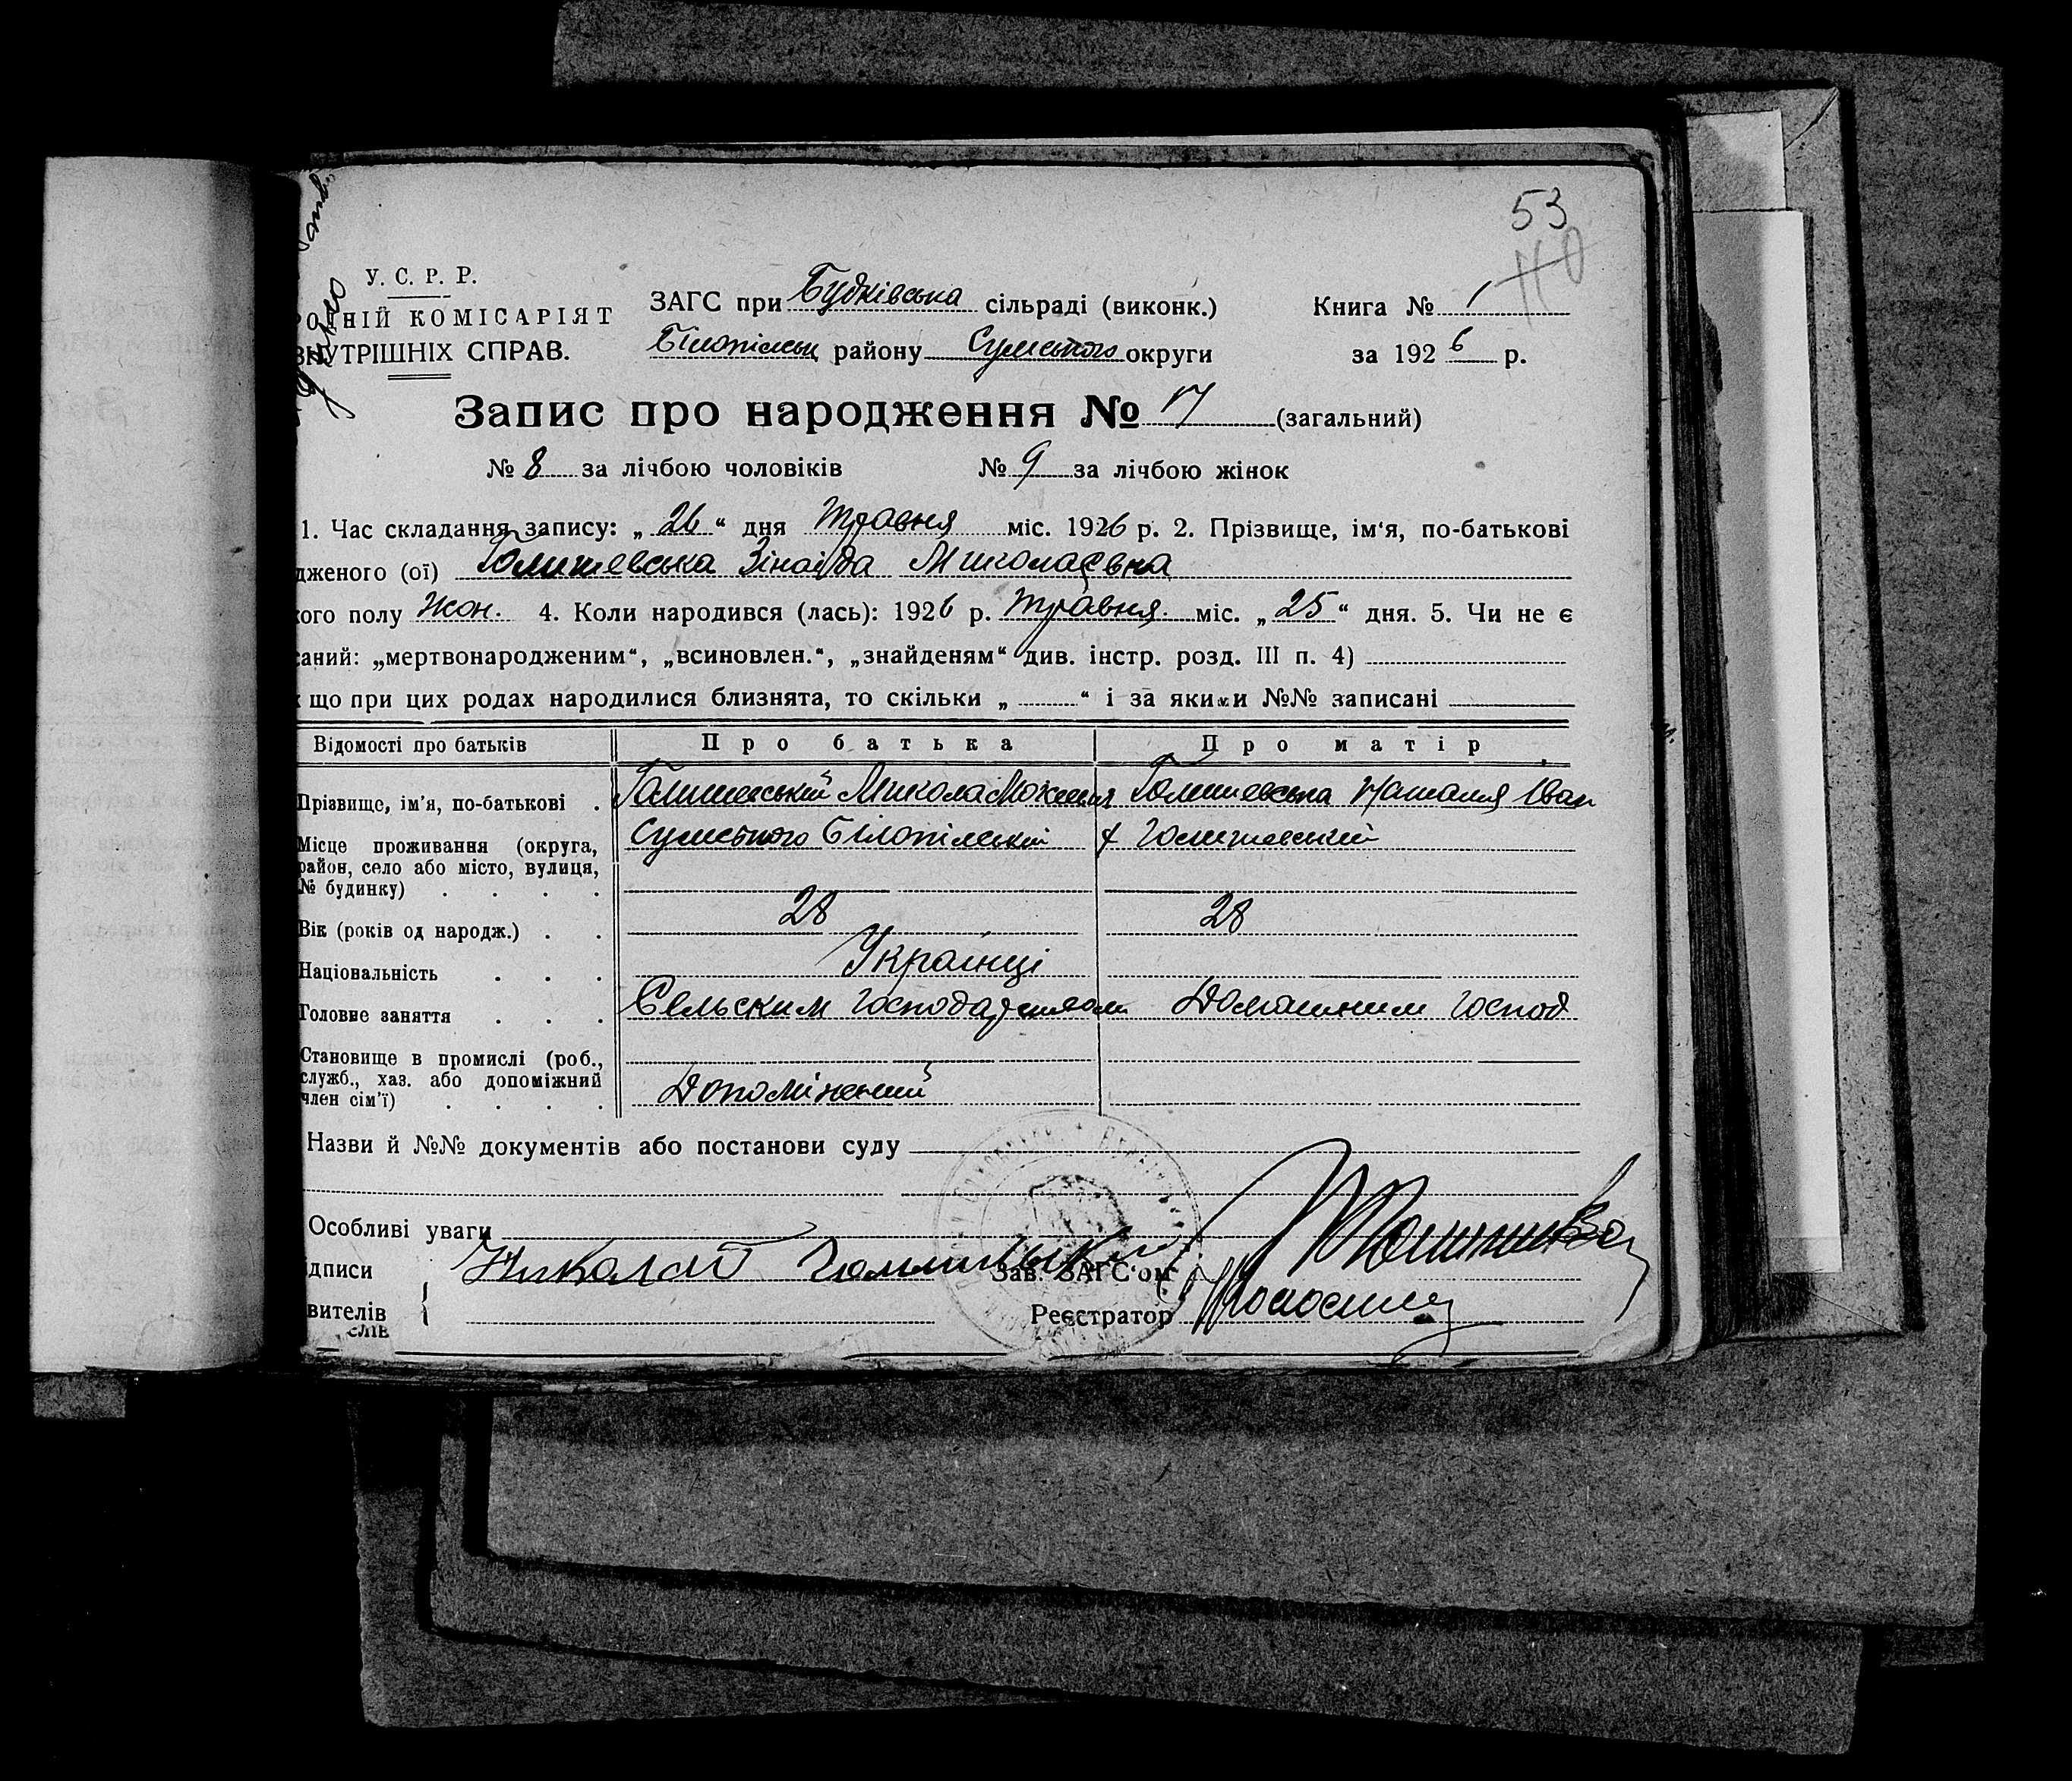 53
110
У. С. Р. Р.
РОДНІЙ КОМІСАРІЯТ
ВНУТРІШНІХ СПРАВ.
ЗАГС при Будківська сільраді (виконк.)
Білопільськ району Сумського округи
Книга № 1
за 1926 р.
Запис про народження № 17 (загальний)
№ 8 за лічбою чоловіків № 9 за лічбою жінок
1. Час складання запису: „26“ дня Травня міс. 1926 р. 2. Прізвище, ім‘я, по-батькові
дженого (ої) Голишевська Зінаіда Миколаєвна
кого полу Жон. 4. Коли народився (лась): 1926 р. Травня міс. „25“ дня. 5. Чи не є
саний: „мертвонародженим“, „всиновлен.“, „знайденям“ див. інстр. розд. III п. 4)
що при цих родах народилися близнята, то скільки „ “ і за якими №№ записані
Відомості про батьків Про батька Про матір
Прізвище, ім‘я, по-батькові . Голишевський Микола Голишевська Наталия Иван
Місце проживання (округа, район, село або місто, вулиця, № будинку) . . . . Сумського Білопільский х Голишевський
Вік (років од народж.) . . 28 28
Національність . . . Українці
Головне заняття . . . Сельским господарством Домашним господ
Становище в промислі (роб., служб., хаз. або допоміжний член сім‘ї) . . . . Допоміжний
Назви й №№ документів або постанови суду
Особливі уваги
ідписи Николай
Зав. ЗАГС‘ом
вителів {
Реєстратор
слів